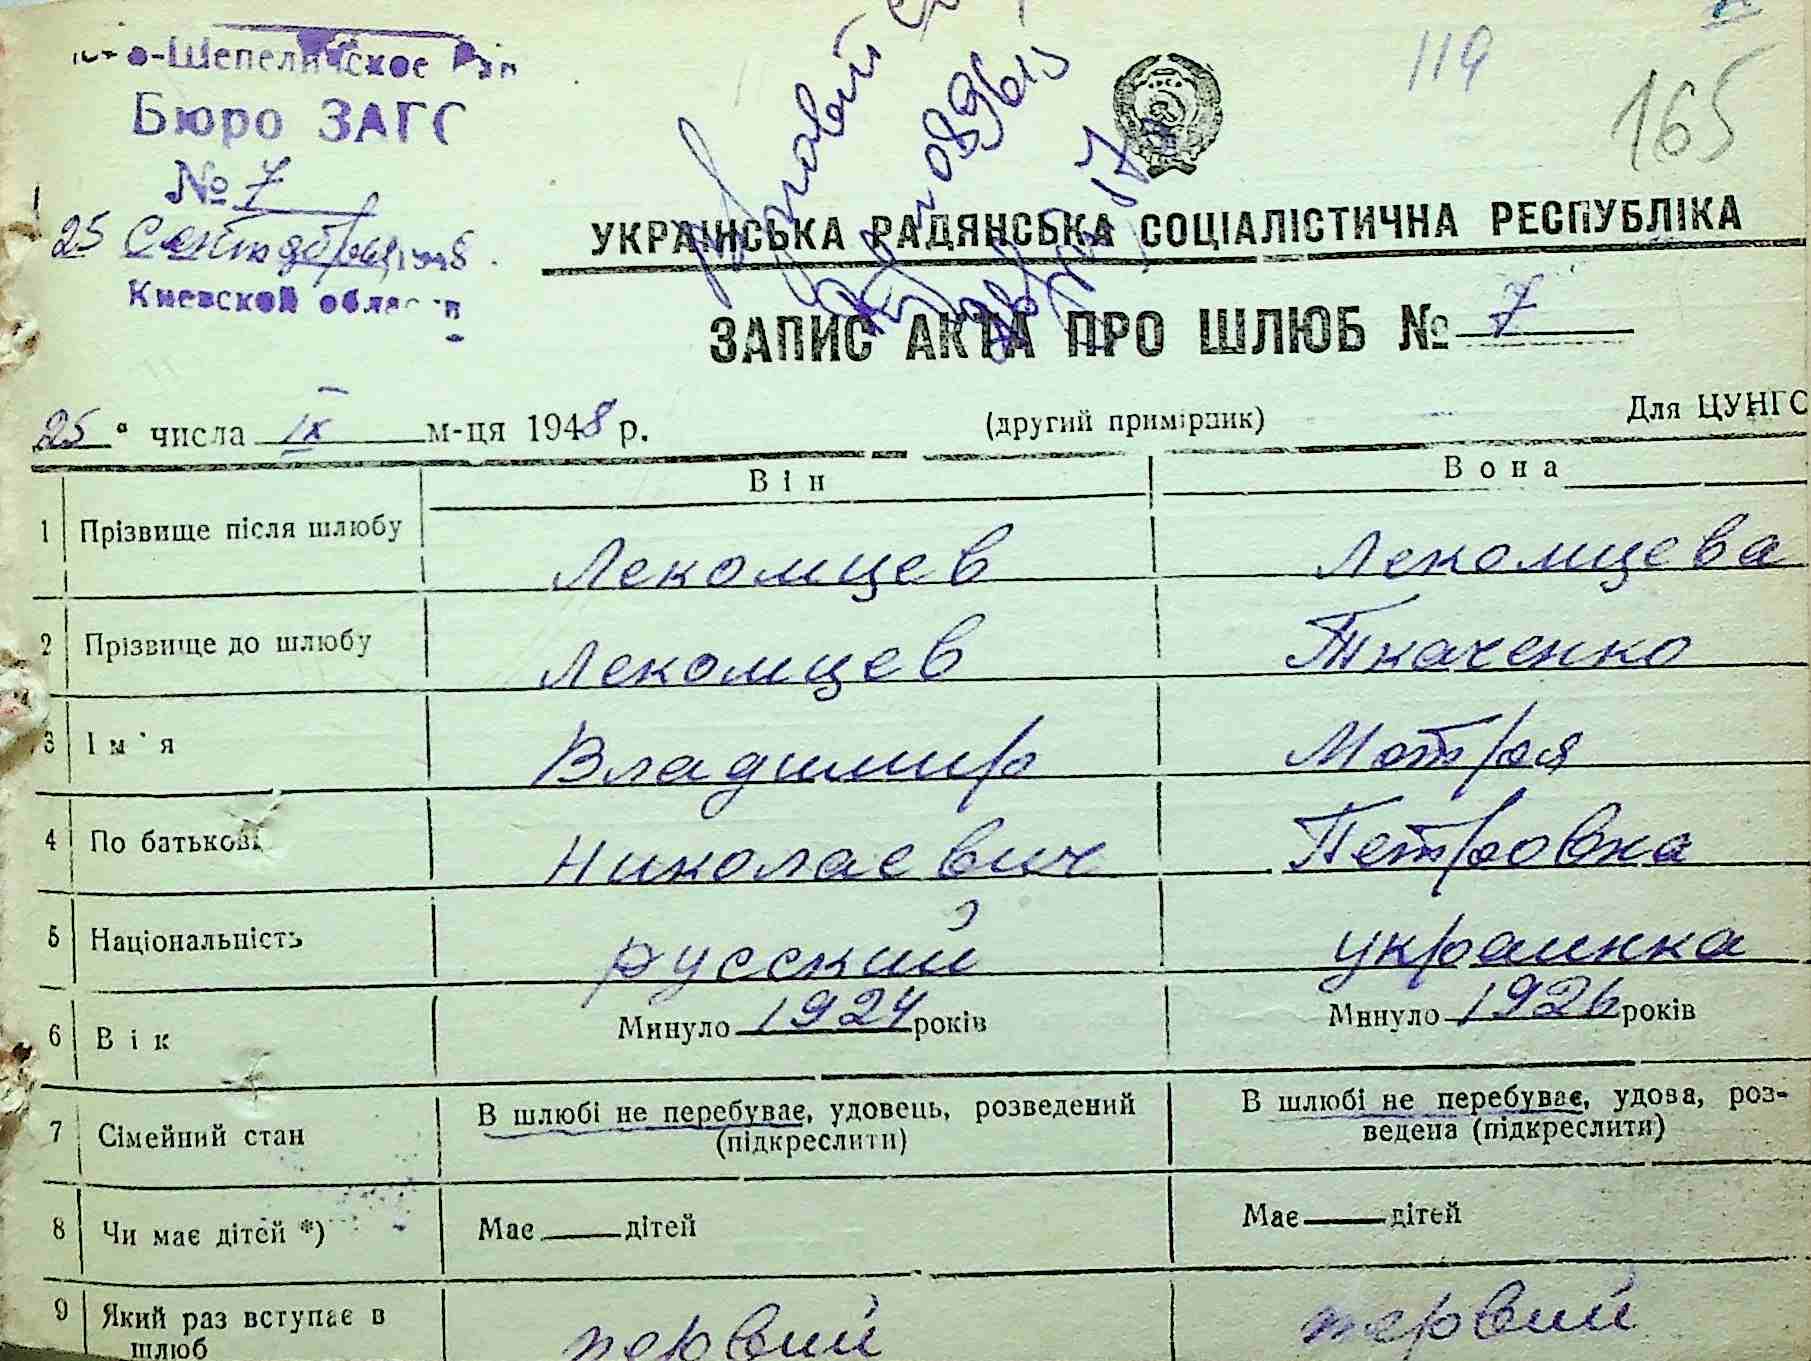 о-Шепеличское Рай
Бюро ЗАГС
№ 7
25 Сентября 1948
Киевской области
119
165
УКРАІНСЬКА РАДЯНСЬКА СОЦІАЛІСТИЧНА РЕСПУБЛІКА
ЗАПИС АКТА ПРО ШЛЮБ № 7
25 числа IX м-ця 1948 р.
(другий примірник)
Для ЦУНГС
Він
Вона
1 Прізвище після шлюбу Лекомцев Лекомцева
2 Прізвище до шлюбу Лекомцев Ткаченко
3 Ім'я Владимир Мотря
4 По батькові Николаевич Петровна
5 Національність русский украинка
6 Вік Минуло 1924 років Минуло 1926 років
7 Сімейний стан В шлюбі не перебуває, удовець, розведений (підкреслити) В шлюбі не перебуває, удова, роз-
ведена (підкреслити)
8 Чи має дітей *) Має дітей Має дітей
9 Який раз вступає в
шлюб первий первий